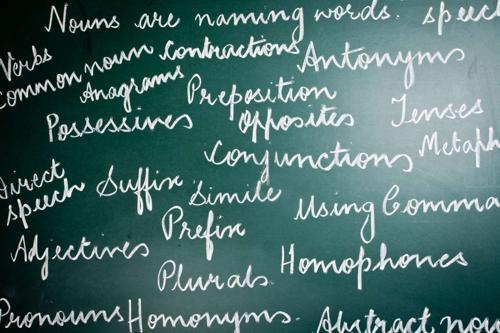 Nouns are naming words. speech
Verbs
Common noun contractions
Antonyms
Anagrams
Preposition
Possessives
Opposites
Tenses
Conjunctions
Metaph
Direct
speech
Suffix
Simile
Using Comma
Prefix
Adjectives
Homophones
Plurals
Pronouns
Homonyms.
Abstract nou